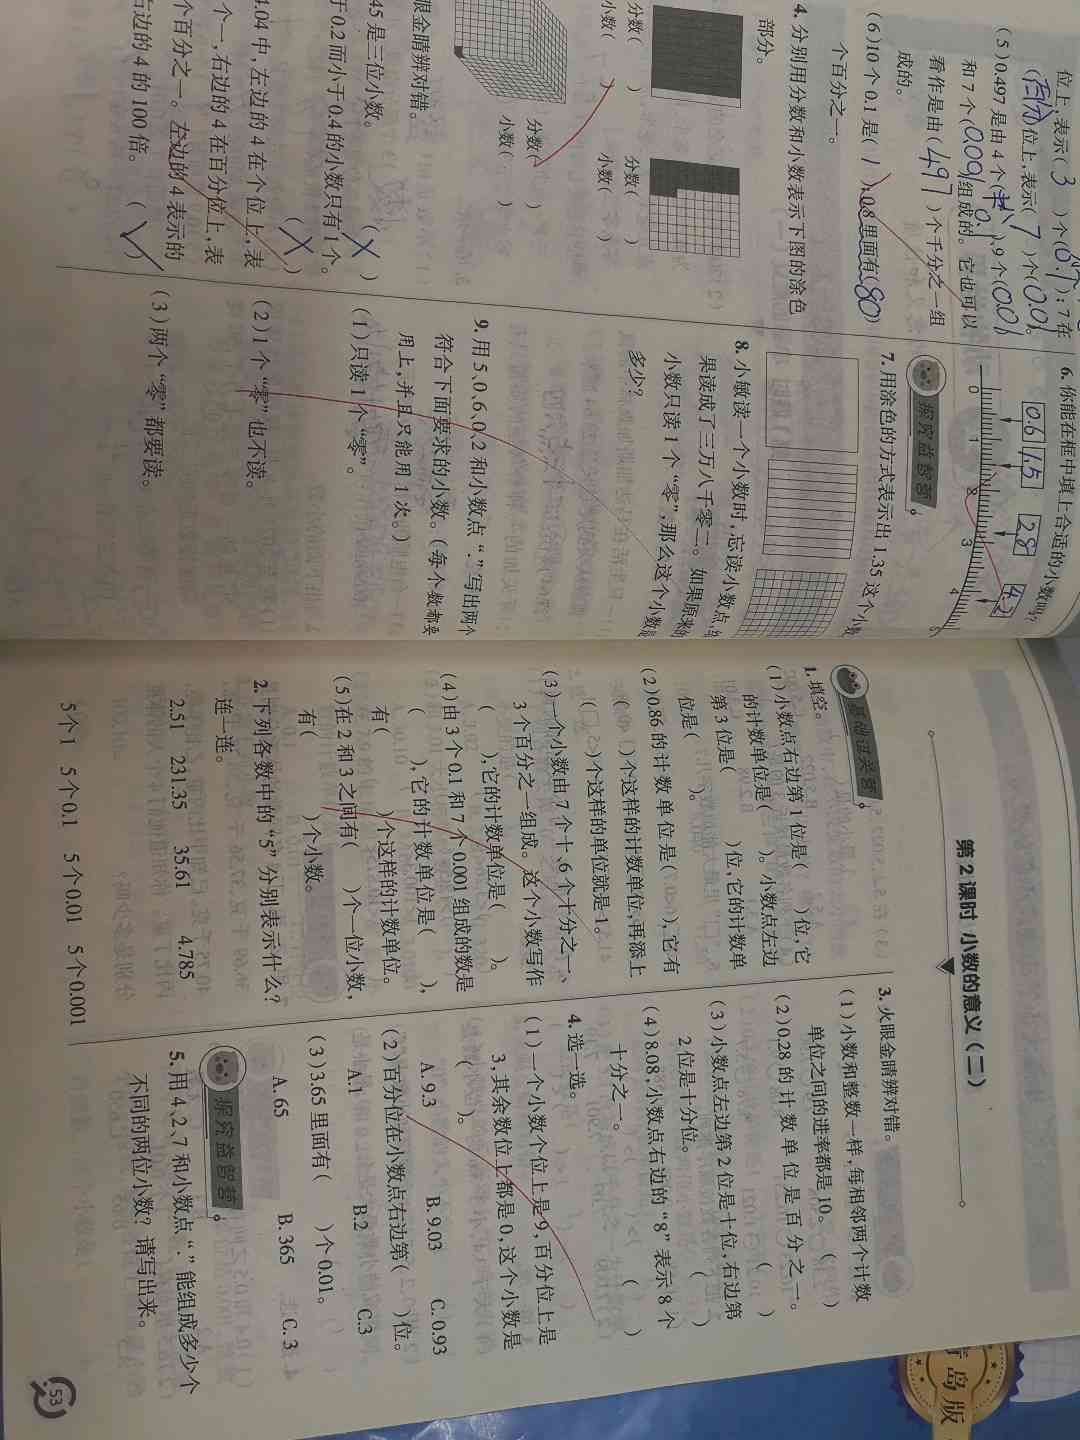 位上,表示( 3 )个(0.1);7在
(百分)位上,表示( 7 )个(0.01)。
(5)0.497是由4个(0.1)、9个(0.01)
和7个(0.001)组成的。它也可以
看作是由(497)个千分之一组
成的。
(6)10个0.1是( 1 ),0.8里面有(80)
个百分之一。
4. 分别用分数和小数表示下图的涂色
部分。
分数(  )
小数(  )
分数(  )
小数(  )
分数(  )
小数(  )
眼金睛辨对错。
45是三位小数。 (×)
于0.2而小于0.4的小数只有1个。
(×)
4.04中,左边的4在个位上,表
个一,右边的4在百分位上,表
个百分之一。左边的4表示的
右边的4的100倍。 (√)
6. 你能在框中填上合适的小数吗?
0.6 1.5 2.8 4.2
0 1 2 3 4 5
探究益智营
7. 用涂色的方式表示出1.35这个小数
8. 小敏读一个小数时,忘读小数点,结
果读成了三万八千零二。如果原来的
小数只读1个“零”,那么这个小数是
多少?
9. 用5、0、6、0、2和小数点“.”写出两个
符合下面要求的小数。(每个数都要
用上,并且只能用1次。)
(1)只读1个“零”。
(2)1个“零”也不读。
(3)两个“零”都要读。
第2课时 小数的意义(二)
基础过关营
1. 填空。
(1)小数点右边第1位是(  )位,它
的计数单位是(  )。小数点左边
第3位是(  )位,它的计数单
位是(  )。
(2)0.86的计数单位是(  ),它有
(  )个这样的计数单位,再添上
(  )个这样的单位就是1。
(3)一个小数由7个十、6个十分之一、
3个百分之一组成。这个小数写作
(  ),它的计数单位是(  )。
(4)由3个0.1和7个0.001组成的数是
(  ),它的计数单位是(  ),
有(  )个这样的计数单位。
(5)在2和3之间有(  )个一位小数,
有(  )个小数。
2. 下列各数中的“5”分别表示什么?
连一连。
2.51 231.35 35.61 4.785
5个1 5个0.1 5个0.01 5个0.001
3. 火眼金睛辨对错。
(1)小数和整数一样,每相邻两个计数
单位之间的进率都是10。 (  )
(2)0.28的计数单位是百分之一。
(  )
(3)小数点左边第2位是十位,右边第
2位是十分位。 (  )
(4)8.08,小数点右边的“8”表示8个
十分之一。 (  )
4. 选一选。
(1)一个小数个位上是9,百分位上是
3,其余数位上都是0,这个小数是
(  )。
A.9.3 B.9.03 C.0.93
(2)百分位在小数点右边第(  )位。
A.1 B.2 C.3
(3)3.65里面有(  )个0.01。
A.65 B.365 C.3
探究益智营
5. 用4、2、7和小数点“.”能组成多少个
不同的两位小数?请写出来。
53
青岛版